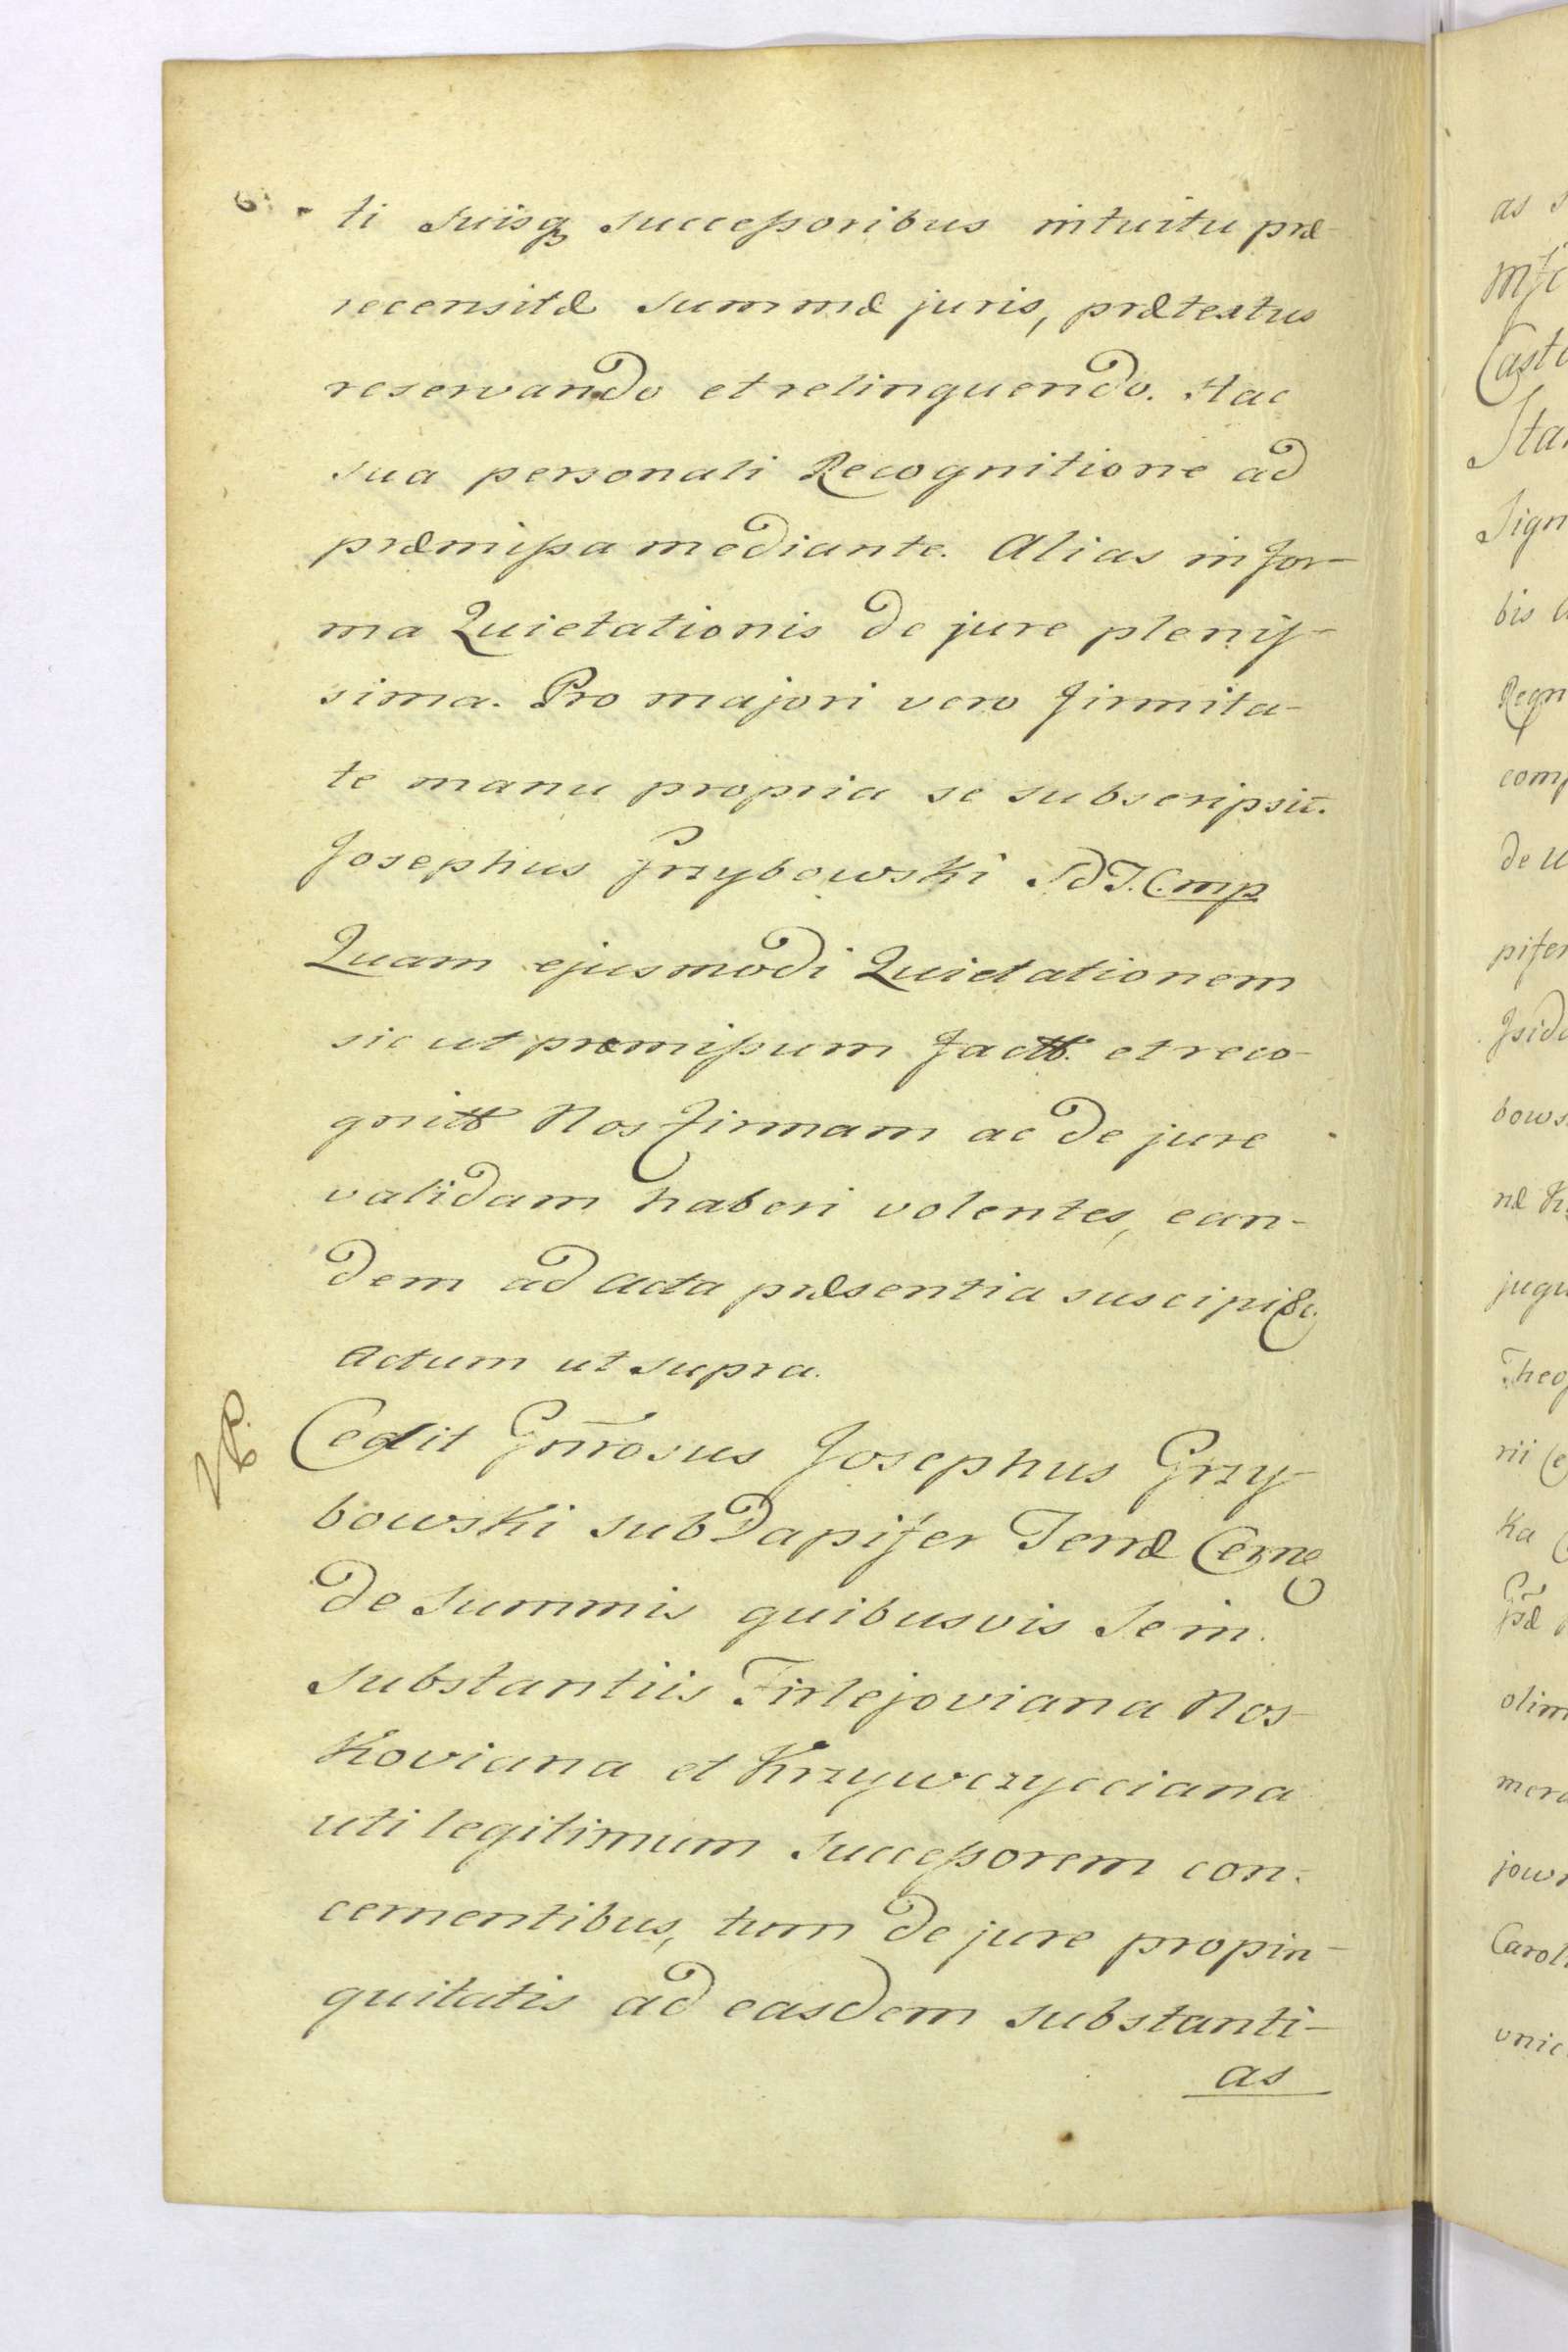 6.
ti suisq successoribus intuitu præ-
recensitæ summæ juris, prætextus
reservando et relinquendo. Hac
sua personali Recognitione ad
præmissa mediante. Alias in for-
ma Quietationis de jure plenis-
sima. Pro majori vero firmita-
te manu propria se subscripsit.
Josephus Grzybowski S.d.T.C. mp
Quam ejusmodi Quietationem
sic ut præmissum factt. et reco-
gnitt Nos firmam ac de jure
validam haberi volentes, ean-
dem ad acta præsentia suscipi &c
Actum ut supra.
Cedit Gnrosus Josephus Grzy-
bowski subDapifer Terræ Cerne
de summis quibusvis se in
substantiis Firlejoviana Nos-
Koviana et Krzywczycciana
uti legitimum successorem con-
cernentibus, tum de jure propin-
quitatis ad easdem substanti-
as
as
Casto
Sign
bis
Regn
comp
de
pifer
bows
næ
jugu
Theo
rii
Ka
olim
jow
Carol
unic